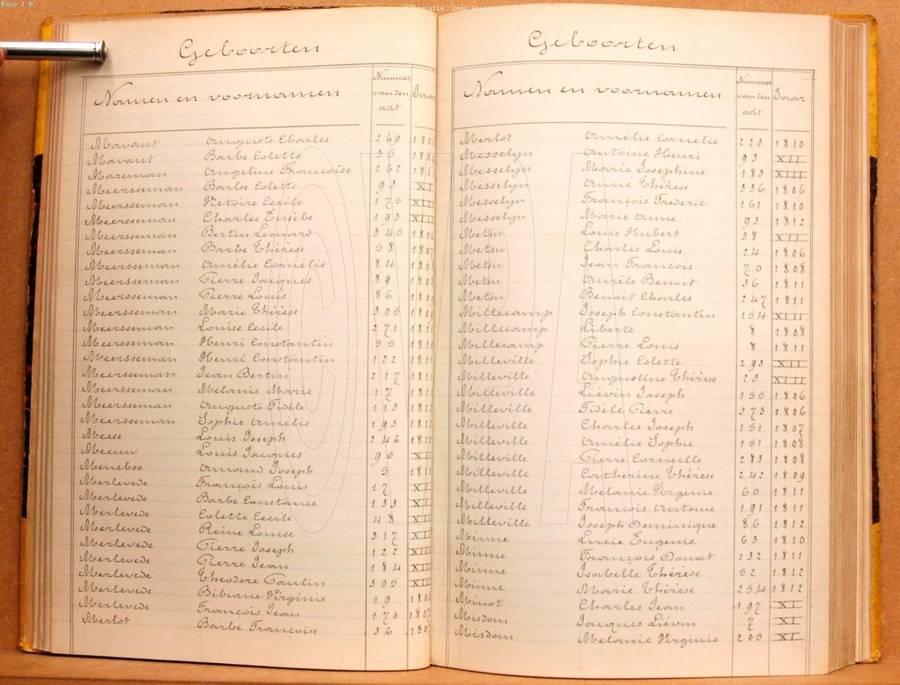 Geboorten
Namen en voornamen
Nummer van den akt
Mavaut Auguste Charles 269
Mavaut Barbe Colette 35
Mazeman Angeline Françoise 262
Meersseman Barbe Colette 93 XI
Meersseman Victoire Cecile 175
Meersseman Charles Eusèbe 193
Meersseman Bertin Leonard 345
Meersseman Barbe Thérèse 58
Meersseman Amélie Cornélie 84
Meersseman Pierre Jacques 89
Meersseman Pierre Louis 86
Meersseman Marie Thérèse 305
Meersseman Louise Cecile 271
Meersseman Henri Constantin 55
Meersseman Henri Constantin 122
Meersseman Jean Bertin 217
Meersseman Melanie Marie 17
Meersseman Auguste Fidèle 113
Meersseman Sophie Amélie 193
Meese Louis Joseph 246
Meeuw Louis Jacques 96
Meneboo Armand Joseph 5
Merlevede François Louis 17
Merlevede Barbe Constance 133
Merlevede Colette Cecile 48
Merlevede Reine Louise 317
Merlevede Pierre Joseph 122
Merlevede Pierre Jean 184
Merlevede Theodore Paulin 305
Merlevede Bibiane Virginie 19
Merlevede François Jean 170
Merlot Barbe Françoise 36
Geboorten
Namen en voornamen
Nummer van den akt
Jaar
Merlot Amélie Cornélie 223 1810
Messelyn Antoine Henri 93 XII
Messelyn Marie Josephine 183 XIII
Messelyn Anne Thérèse 336 1806
Messelyn François Frederic 161 1810
Messelyn Marie Anne 93 1812
Metsu Louis Hubert 38 XII
Metsu Charles Louis 24 1806
Metsu Jean François 70 1808
Metsu Aurèle Benoit 36 1811
Metsu Benoit Charles 247 1811
Millecamp Joseph Constantin 154 XIII
Millecamp Liberte 8 1808
Millecamp Pierre Louis 8 1811
Milleville Sophie Colette 293 XII
Milleville Augustine Thérèse 23 XIII
Milleville Liévin Joseph 155 1806
Milleville Fidèle Pierre 373 1806
Milleville Charles Joseph 151 1807
Milleville Amélie Sophie 151 1808
Milleville Pierre Corneille 283 1808
Milleville Catherine Thérèse 242 1809
Milleville Melanie Virginie 60 1811
Milleville François Antoine 191 1811
Milleville Joseph Dominique 86 1812
Minne Lucie Eugenie 63 1810
Minne François Donat 132 1811
Minne Isabelle Thérèse 52 1812
Minne Marie Thérèse 254 1812
Minot Charles Jean 197 XI
Misdom Jacques Liévin 7 XI
Misdom Melanie Virginie 205 XI